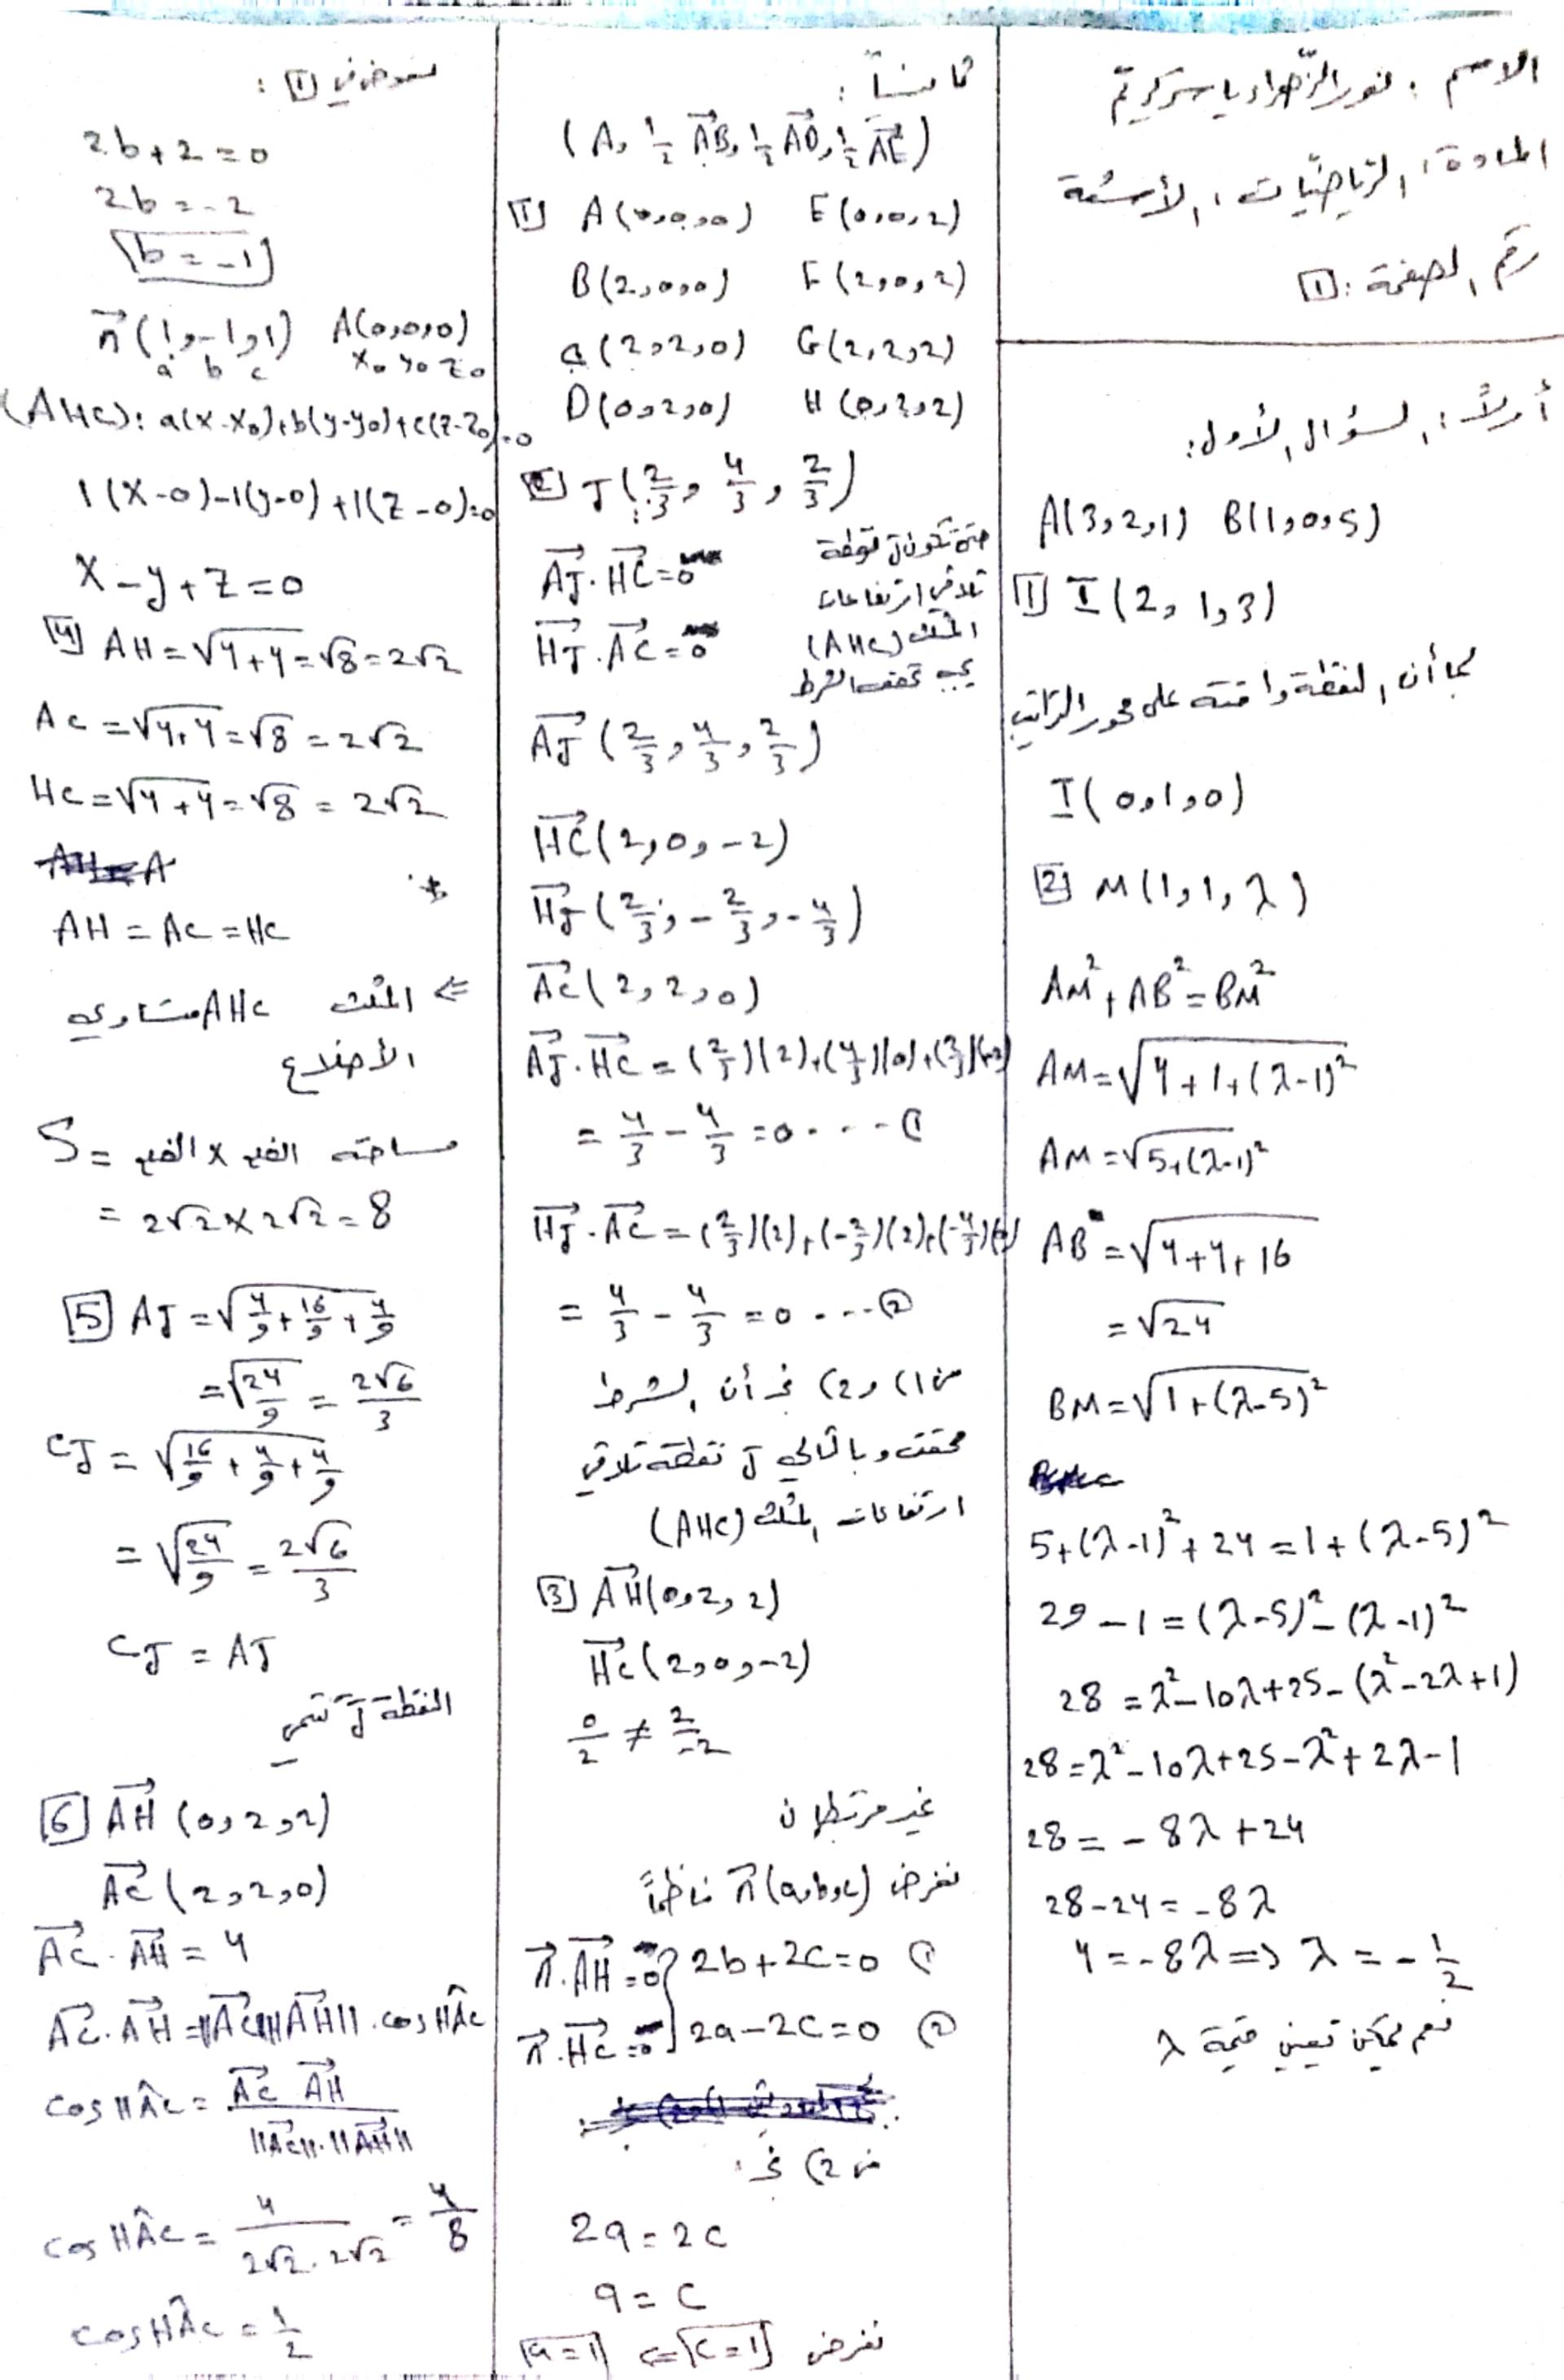 الاسم : نور الزّهراء ياسر كريّم
المادة : الرّياضيّات ، الأسئلة
رقم الصفحة : 1
أولاً : السؤال الأول :
A(3,2,1) B(1,0,5)
1 I(2,1,3)
بما أن النقطة واقعة على محور التراتيب
I(0,1,0)
2 M(1,1,λ)
AM²+AB²=BM²
AM=√4+1+(λ-1)²
AM=√5+(λ-1)²
AB=√4+4+16
=√24
BM=√1+(λ-5)²
5+(λ-1)²+24=1+(λ-5)²
29-1=(λ-5)²-(λ-1)²
28=λ²-10λ+25-(λ²-2λ+1)
28=λ²-10λ+25-λ²+2λ-1
28=-8λ+24
28-24=-8λ
4=-8λ=>λ=-1/2
نعم يمكن تعيين قيمة λ
ثانياً :
(A, 1/2 AB, 1/2 AD, 1/2 AE)
1 A(0,0,0) E(0,0,2)
B(2,0,0) F(2,0,2)
C(2,2,0) G(2,2,2)
D(0,2,0) H(0,2,2)
2 J(2/3, 4/3, 2/3)
حتى تكون J نقطة
AJ.HC=0
تلاقي ارتفاعات
HJ.AC=0
المثلث (AHC)
يجب تحقق الشرط
AJ(2/3, 4/3, 2/3)
HC(2,0,-2)
HJ(2/3, -2/3, -4/3)
AC(2,2,0)
AJ.HC=(2/3)(2)+(4/3)(0)+(2/3)(-2)
= 4/3 - 4/3 =0....①
HJ.AC=(2/3)(2)+(-2/3)(2)+(-4/3)(0)
= 4/3 - 4/3 =0...②
من 1) و 2) نجد أن الشرط
محقق وبالتالي J نقطة تلاقي
ارتفاعات المثلث (AHC)
3 AH(0,2,2)
HC(2,0,-2)
0/2 ≠ 2/-2
غير مرتبطان
نفرض n(a,b,c) ناظماً
n.AH=0 } 2b+2c=0 ①
n.HC=0 } 2a-2c=0 ②
من 2) نجد :
2a=2c
a=c
نفرض c=1 => a=1
نعوض في 1 :
2b+2=0
2b=-2
b=-1
n(1,-1,1) A(0,0,0)
a b c x₀ y₀ z₀
(AHC): a(x-x₀)+b(y-y₀)+c(z-z₀)=0
1(x-0)-1(y-0)+1(z-0)=0
x-y+z=0
4 AH=√4+4=√8=2√2
AC=√4+4=√8=2√2
HC=√4+4=√8=2√2
AH=AC=HC
=> المثلث AHC متساوي
الأضلاع
مساحته الضلع × الضلع = S
= 2√2×2√2=8
5 AJ=√4/9+16/9+4/9
=√24/9 = 2√6/3
CJ=√16/9+4/9+4/9
=√24/9 = 2√6/3
CJ=AJ
النقطة J تنتمي
6 AH(0,2,2)
AC(2,2,0)
AC.AH=4
AC.AH=||AC||||AH||.cosHÂC
cosHÂC= AC AH / ||AC||.||AH||
cosHÂC= 4/2√2.2√2 = 4/8
cosHÂC= 1/2